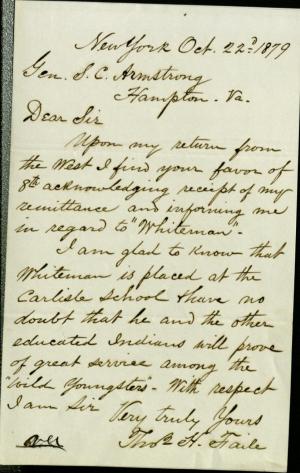 New York Oct. 22d 1879
Gen. S. C. Armstrong
Hampton. Va.
Dear Sir
Upon my return from
the West I find your favor of
8th acknowledging receipt of my
remittance and informing me
in regard to "Whiteman".
I am glad to know that
Whiteman is placed at the
Carlisle School & have no
doubt that he and the other
educated Indians will prove
of great service among the
"wild Youngsters". With respect
I am Sir
Very truly Yours
Thos. H. Faile